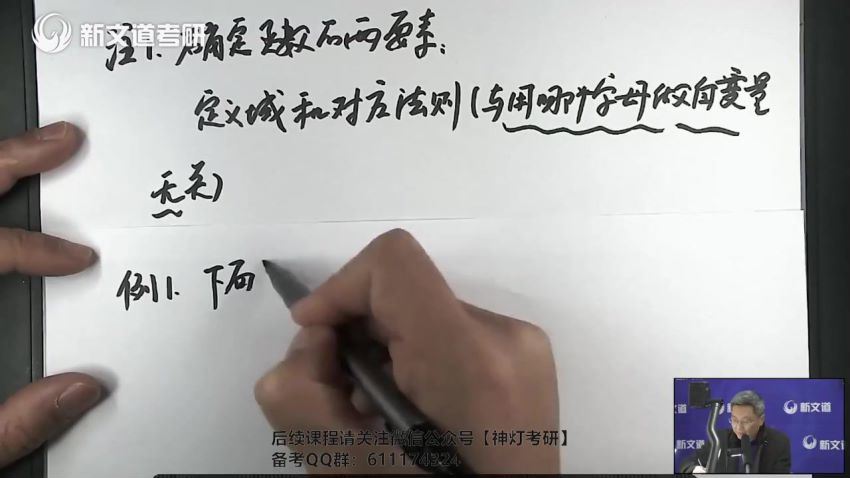 新文道考研
注1. 确定函数的两要素:
定义域和对应法则(与用哪个字母做自变量
无关)
例1. 下面
后续课程请关注微信公众号【神灯考研】
备考QQ群：611174324
新文道
新文道
新文道